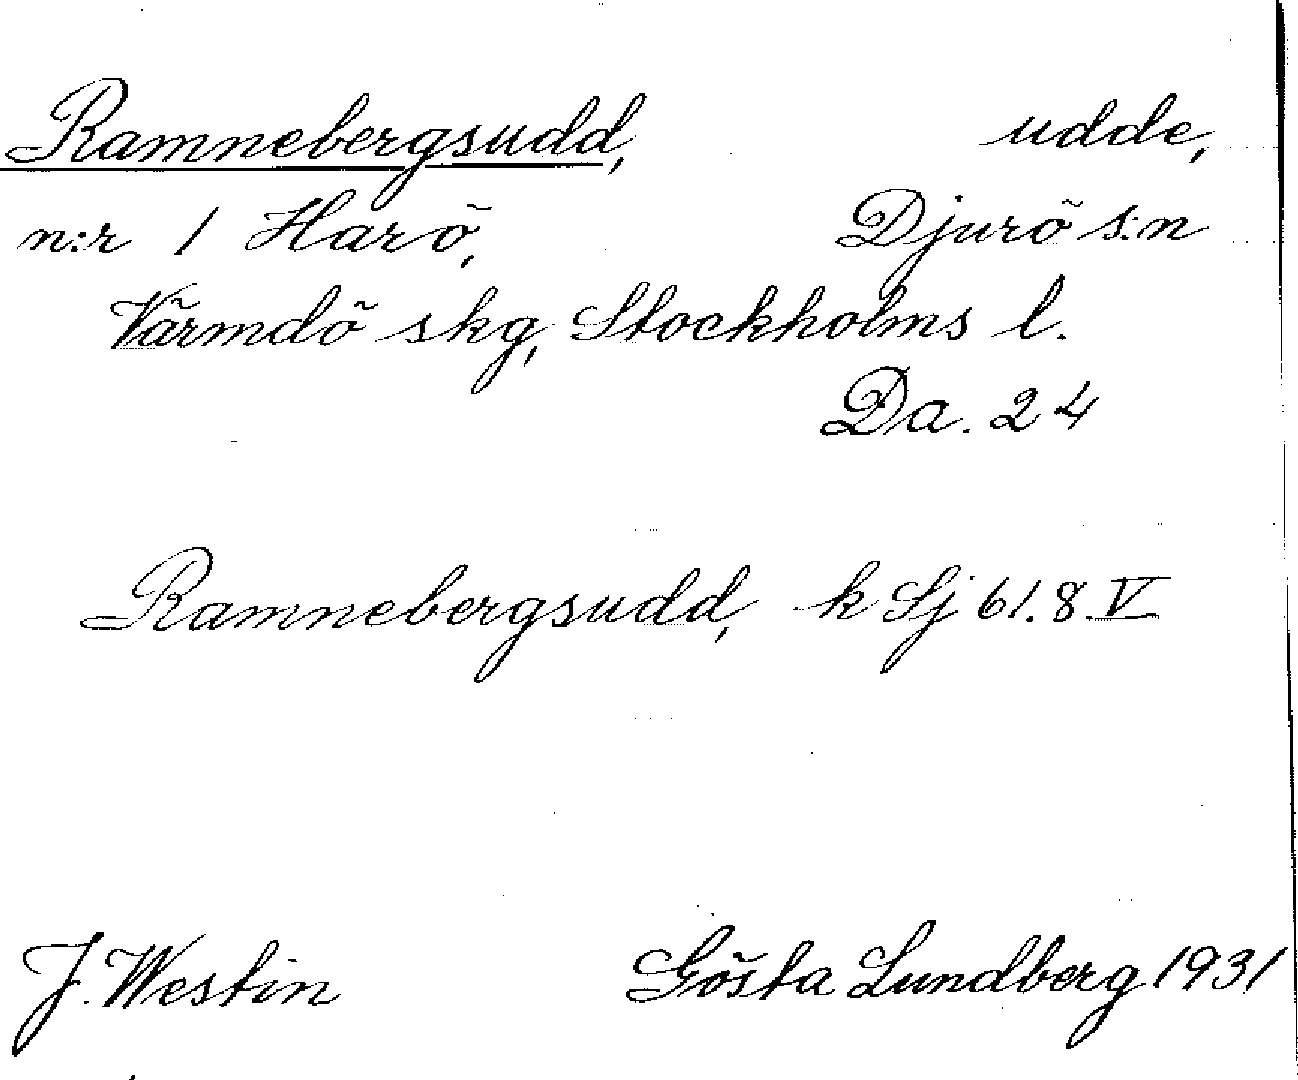 Ramnebergsudd, udde,
n:r 1 Harö, Djurö s:n
Värmdö skg, Stockholms l.
Da. 24
Ramnebergsudd, k Sj 61.8.V
J. Westin Gösta Lundberg 1931